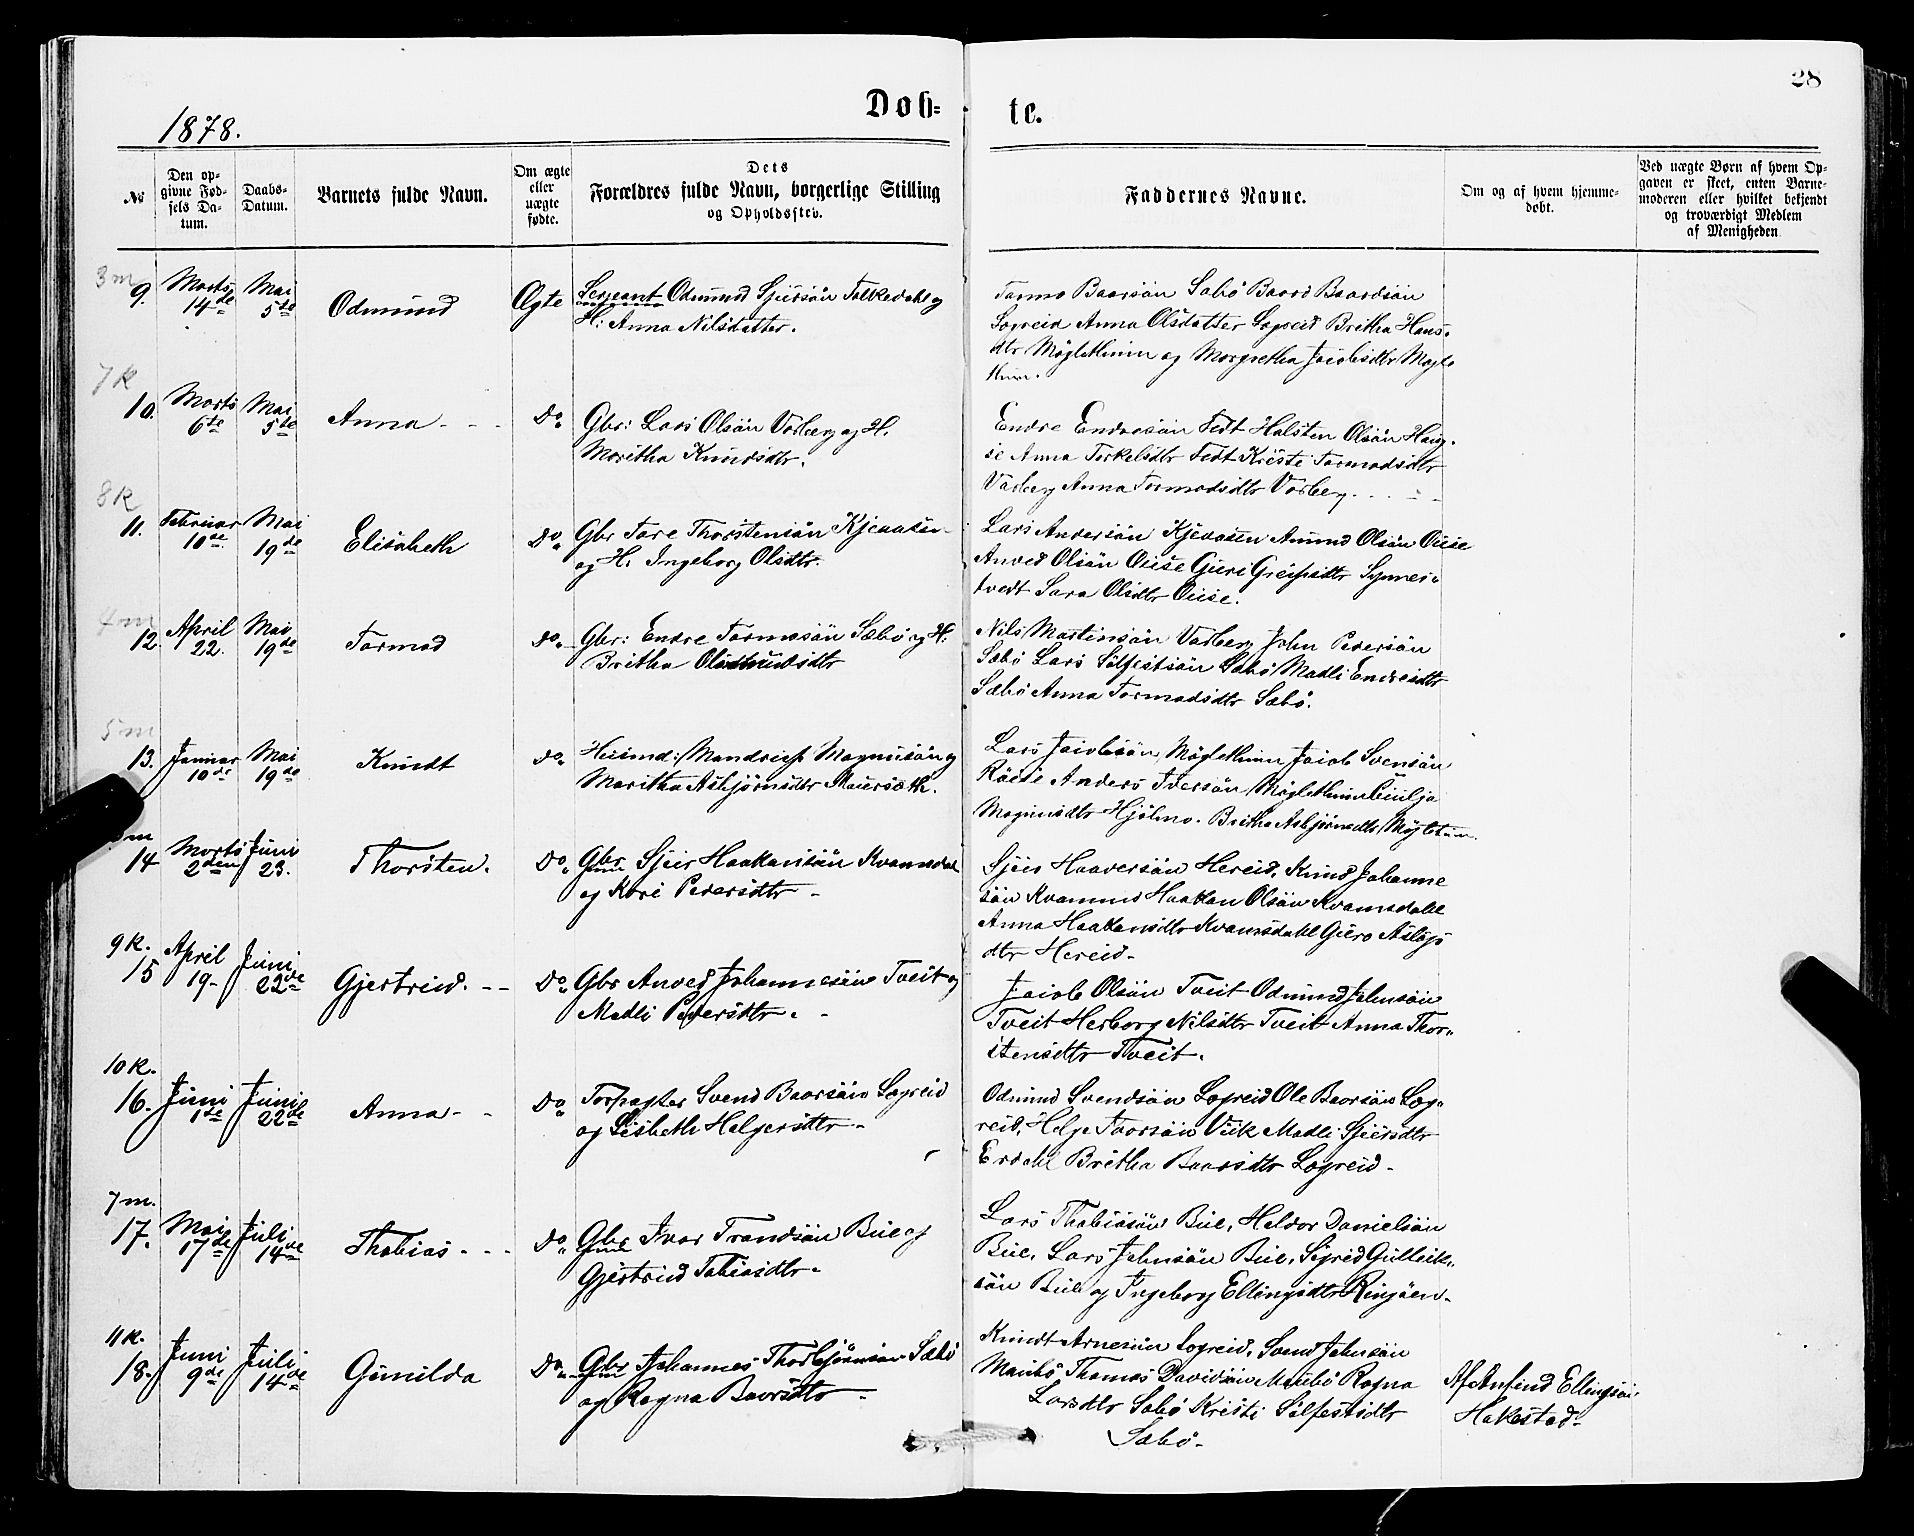 28
Døb-
te.
1878.
№
Den op-
givne Fød-
sels Da-
tum.
Daabs-
Datum.
Barnets fulde Navn.
Om ægte
eller
uægte
fødte.
Dets
Forældres fulde Navn, borgerlige Stilling
og Opholdssted.
Faddernes Navne.
Om og af hvem hjemme-
døbt.
Ved uægte Børn af hvem Op-
gaven er skeet, enten Barne-
moderen eller hvilket bekjendt
og troværdigt Medlem
af Menigheden
3 m
9.
Marts
14de
Mai
5te
Odmund
Ægte
Sergeant Odmund Sjursön Folkedahl og
H: Anna Nilsdatter.
Tarmo Baarsön Sabö Baard Baardsön
Legreid Anna Olsdatter Legreid Britha Hans-
dtr Möglethuun og Margretha Jacobsdtr Mögle
thun.
7 k
10.
Marts
6te
Mai
5te
Anna - - -
Do.
Gbr: Lars Olsön Varberg og H.
Maritha Knudsdtr.
Endre Endresön Tedt Halsten Olsön Haug-
se Anna Torkelsdtr Tedt Kristi Tormodsdtr
Varberg Anna Tormodsdtr Varberg.
8 k
11.
Februar
10de
Mai
19de
Elisabeth
Do.
Gbr Tore Thorstensön Kjeaasen
og H. Ingeborg Olsdtr.
Lars Andersön Kjeaasen Amund Olsön Quse
Anved Olsön Quse Guri Greipsdtr Synnes-
tvedt Sara Olsdtr Quse.
4 m
12.
April
22.
Mai
19de
Tormod
Do.
Gbr: Endre Tormosön Sæbö og H:
Britha Olsdtr
Nils Martinsön Varberg John Pedersön
Sæbö Lars Sölfestsön Sæbö Madli Endresdtr
Sæbö Anna Tormodsdtr Sæbö.
5 m
13.
Januar
10de
Mai
19de
Knudt
Do.
Huusmd: Mandrup Magnusön og
Maritha Asbjörnsdtr Maursæth.
Lars Jacobsön Mögletthuun Jacob Svensön
Röise Anders Iversön Mögletthuun Guilja
Magnusdtr Hjölmo. Britha Asbjörnsdtr Mögletun.
m
14
Marts
2den
Juni
23.
Thorsten.
Do.
Gbr Sjur Haakansön Kvamsdal
og Kari Pedersdtr -
Sjur Haaversön Hereid, Knud Johanne
sön Kvammo Haakan Olsön Kvamsdahl
Anna Haakansdtr Kvamsdahl Guro Aslags
dtr Hereid-
9 k.
15
April
19-
Juni
22de
Gjertrud. - -
Do.
Gbr Anved Johannesön Tveit og
Madli Pedersdtr. -
Jacob Olsön Tveit Odmund Johnsön
Tveit Herborg Nilsdtr Tveit Anna Thor-
stensdtr Tveit.
10 k.
16.
Juni
1ste
Juni
22de
Anna - -
Do.
Forpagter Svend Baarsön Legreid
og Lisbeth Helgersdtr -
Odmund Svendsön Legreid Ole Baarsön Leg-
reid, Helge Ivorsön Viik Madli Sjursdtr
Erdahl Britha Baarsdtr Legreid-
7 m.
17.
Mai
17de
Juli
14de
Thobias - - -
Do.
Gbr Ivar Trondsön Bue og
Gjertrud Tobiasdtr.
Lars Thobiasön Bue, Haldor Danielsön
Bue, Lars Johnsön Bue, Sigrid Gulleik-
sön Bue og Ingeborg Ellingsdtr Ringöen-
11 k.
18.
Juni
9de
Juli
14de
Gunilda
Do.
Gbr Johannes Thorbjörnsön Sæbö
og Ragna Baarsdtr -
Knudt Arnesön Legreid, Svend Johnsön
Maubö Thomas Davidsön Maubö Ragna
Larsdtr Sæbö Kristi Sölfestsdtr
Sæbö-
Af Anfind Ellingsön
Hakestad-